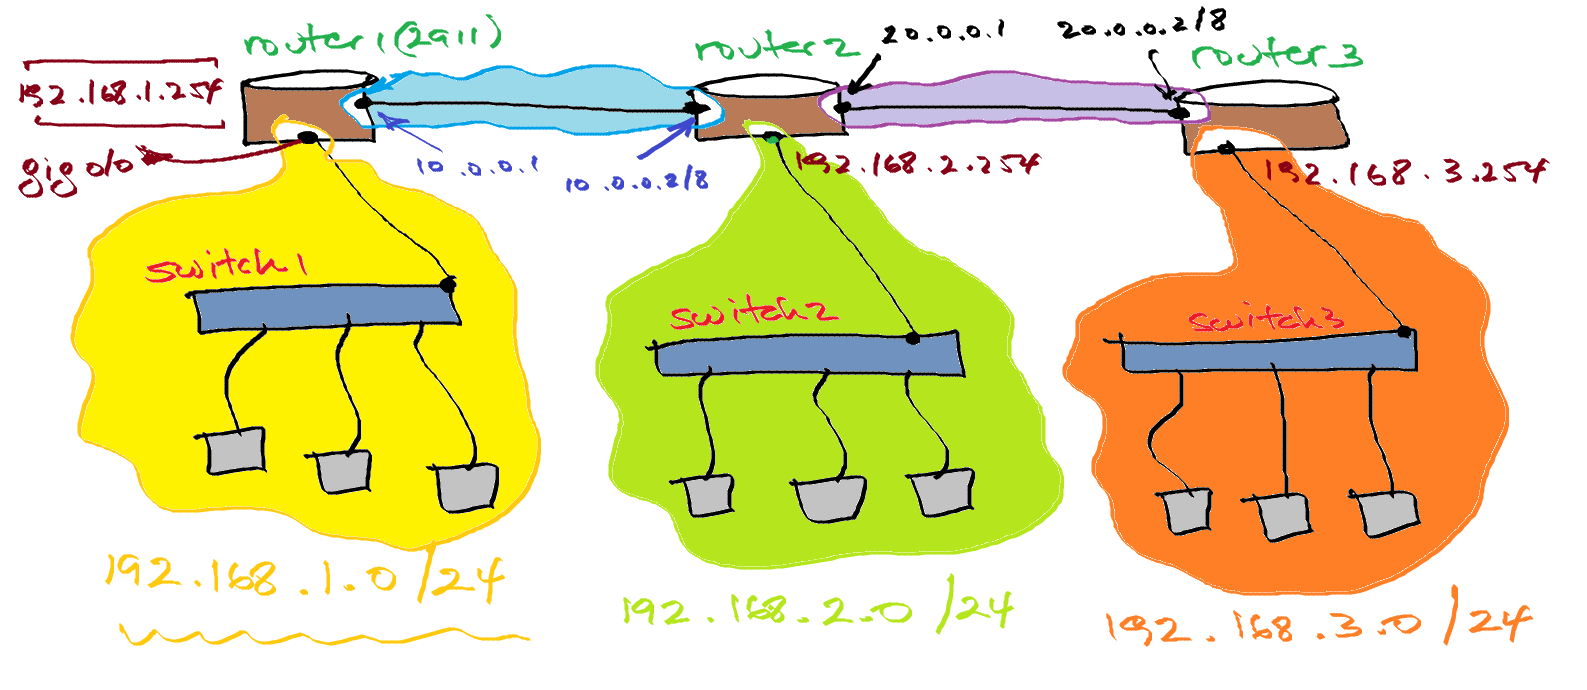 router1(2911)
router2
20.0.0.1
20.0.0.2/8
router3
192.168.1.254
gig0/0
10.0.0.1
10.0.0.2/8
192.168.2.254
192.168.3.254
switch1
switch2
switch3
192.168.1.0/24
192.168.2.0/24
192.168.3.0/24